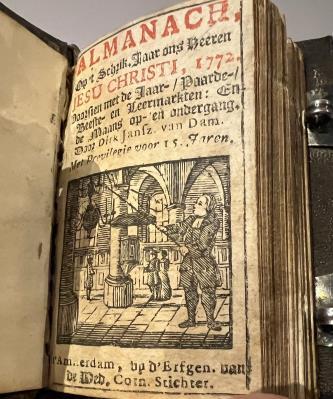 ALMANACH,
Op 't Schrik. Jaar ons Heeren
JESU CHRISTI, 1772.
Voorsien met de Jaar-/Paarde-/
Beeste- en Leermarkten: En-
de Maans op- en ondergang.
Door Dirk Jansz. van Dam.
Met Previlegie voor 15. Jaren.
t'Amsterdam, by d'Erfgen. van
de Wed. Corn. Stichter.